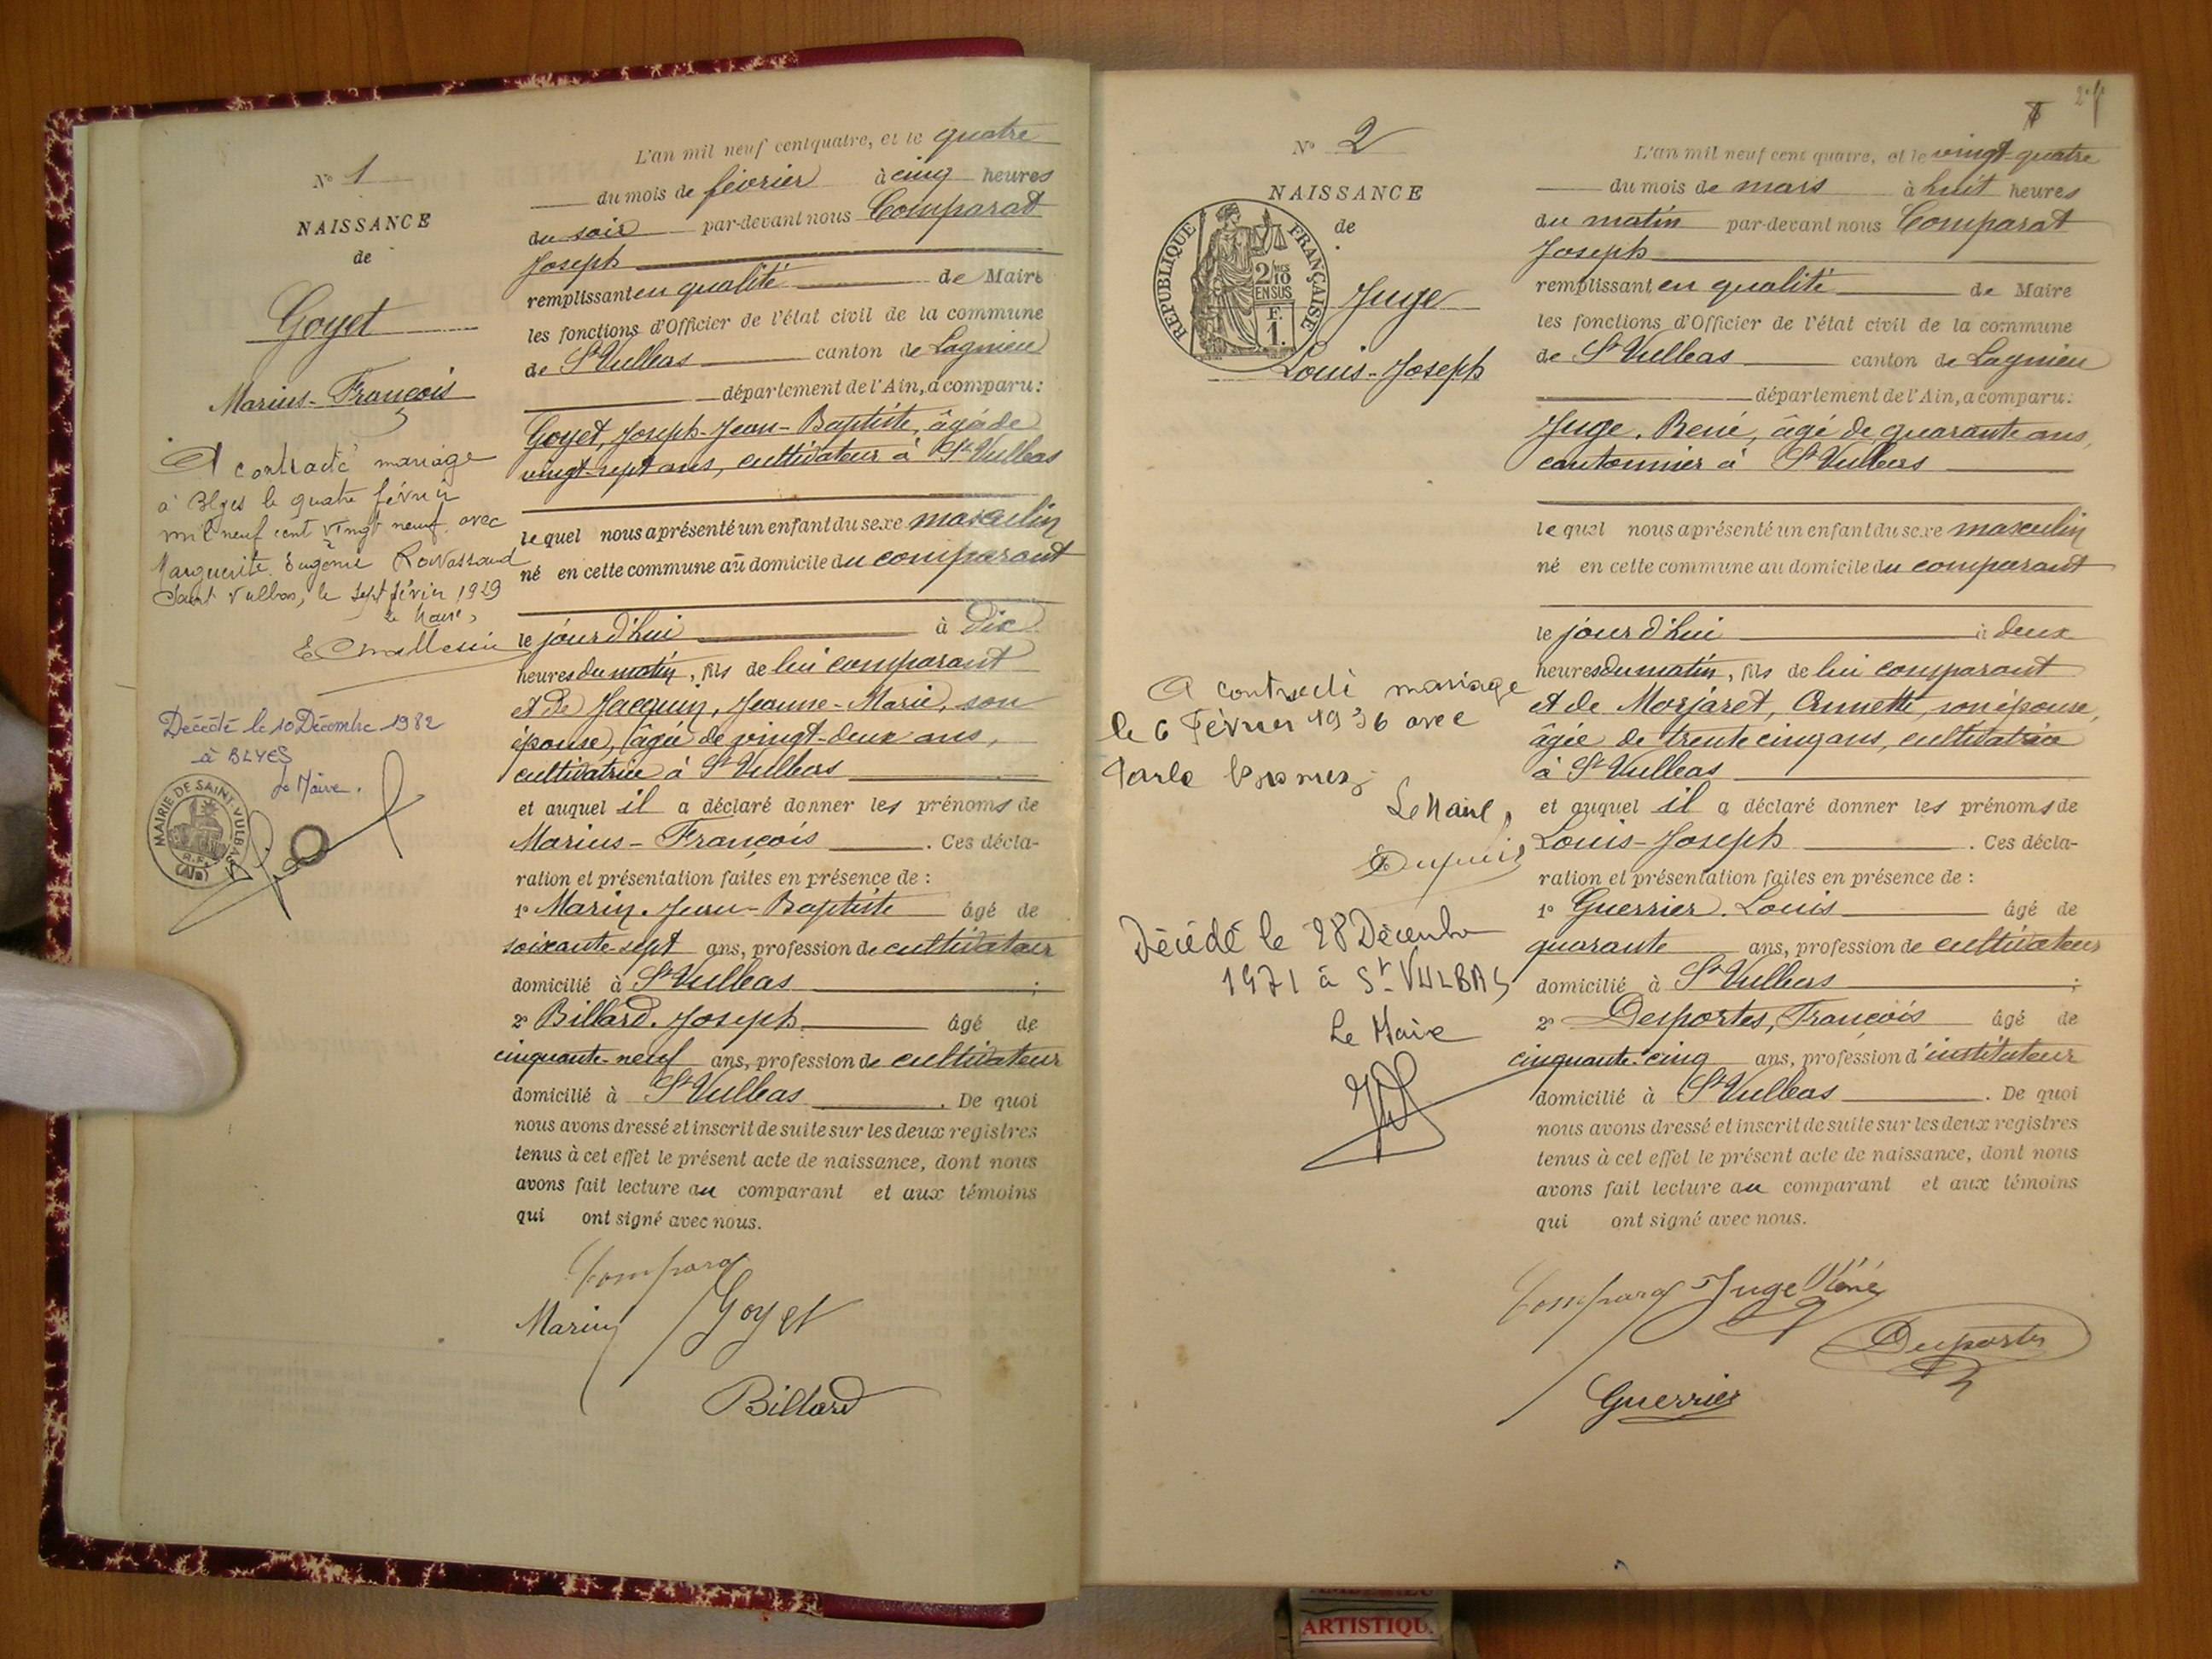 N° 1
NAISSANCE
de
Goyet
Marius-François
A contracté mariage
à Blyes le quatre février
mil neuf cent vingt neuf avec
Marguerite Eugénie
Saint Vulbas, le sept février 1929
Le Maire,
Décédé le 10 Décembre 1982
à BLYES
Le Maire.
MAIRIE DE SAINT-VULBAS
R.F.
(AIN)
L'an mil neuf cent quatre, et le quatre
du mois de février à cinq heures
du soir par-devant nous Comparat
Joseph
remplissant en qualité de Maire
les fonctions d'Officier de l'état civil de la commune
de St Vulbas canton de Lagnieu
département de l'Ain, a comparu:
Goyet, Joseph-Jean-Baptiste, âgé de
vingt-sept ans, cultivateur à St Vulbas
lequel nous a présenté un enfant du sexe masculin
né en cette commune au domicile du comparant
le jour d'hui à dix
heures du matin, fils de lui comparant
et de Jacquin, Jeanne-Marie, son
épouse, âgée de vingt-deux ans,
cultivatrice à St Vulbas
et auquel il a déclaré donner les prénoms de
Marius-François. Ces décla-
ration et présentation faites en présence de :
1° Marin, Jean-Baptiste âgé de
soixante-sept ans, profession de cultivateur
domicilié à St Vulbas ;
2° Billard, Joseph âgé de
cinquante-neuf ans, profession de cultivateur
domicilié à St Vulbas. De quoi
nous avons dressé et inscrit de suite sur les deux registres
tenus à cet effet le présent acte de naissance, dont nous
avons fait lecture au comparant et aux témoins
qui ont signé avec nous.
Comparat
Marin Goyet
Billard
N° 2
NAISSANCE
de
REPUBLIQUE FRANÇAISE
2/10 MES
EN SUS
F.
1.
Juge
Louis-Joseph
A contracté mariage
le 6 Février 1936 avec
Le Maire,
Décédé le 28 Décembre
1971 à St VULBAS
Le Maire
L'an mil neuf cent quatre, et le vingt-quatre
du mois de mars à huit heures
du matin par-devant nous Comparat
Joseph
remplissant en qualité de Maire
les fonctions d'Officier de l'état civil de la commune
de St Vulbas canton de Lagnieu
département de l'Ain, a comparu:
Juge, René, âgé de quarante ans,
cantonnier à St Vulbas
lequel nous a présenté un enfant du sexe masculin
né en cette commune au domicile du comparant
le jour d'hui à deux
heures du matin, fils de lui comparant
et de Morjaret, Annette, son épouse,
âgée de trente cinq ans, cultivatrice
à St Vulbas
et auquel il a déclaré donner les prénoms de
Louis-Joseph. Ces décla-
ration et présentation faites en présence de :
1° Guerrier, Louis âgé de
quarante ans, profession de cultivateur
domicilié à St Vulbas ;
2° Desportes, François âgé de
cinquante-cinq ans, profession d'instituteur
domicilié à St Vulbas. De quoi
nous avons dressé et inscrit de suite sur les deux registres
tenus à cet effet le présent acte de naissance, dont nous
avons fait lecture au comparant et aux témoins
qui ont signé avec nous.
Comparat Juge René
Desportes
Guerrier
ARTISTIQU